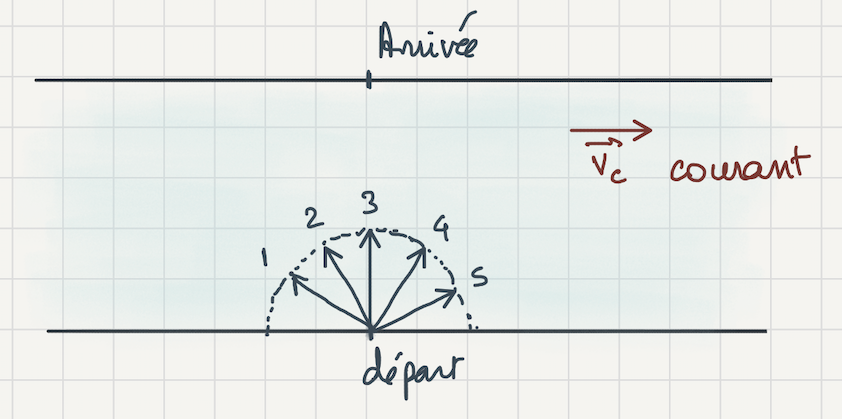 Arrivée
v_c courant
3
2 4
1 5
départ